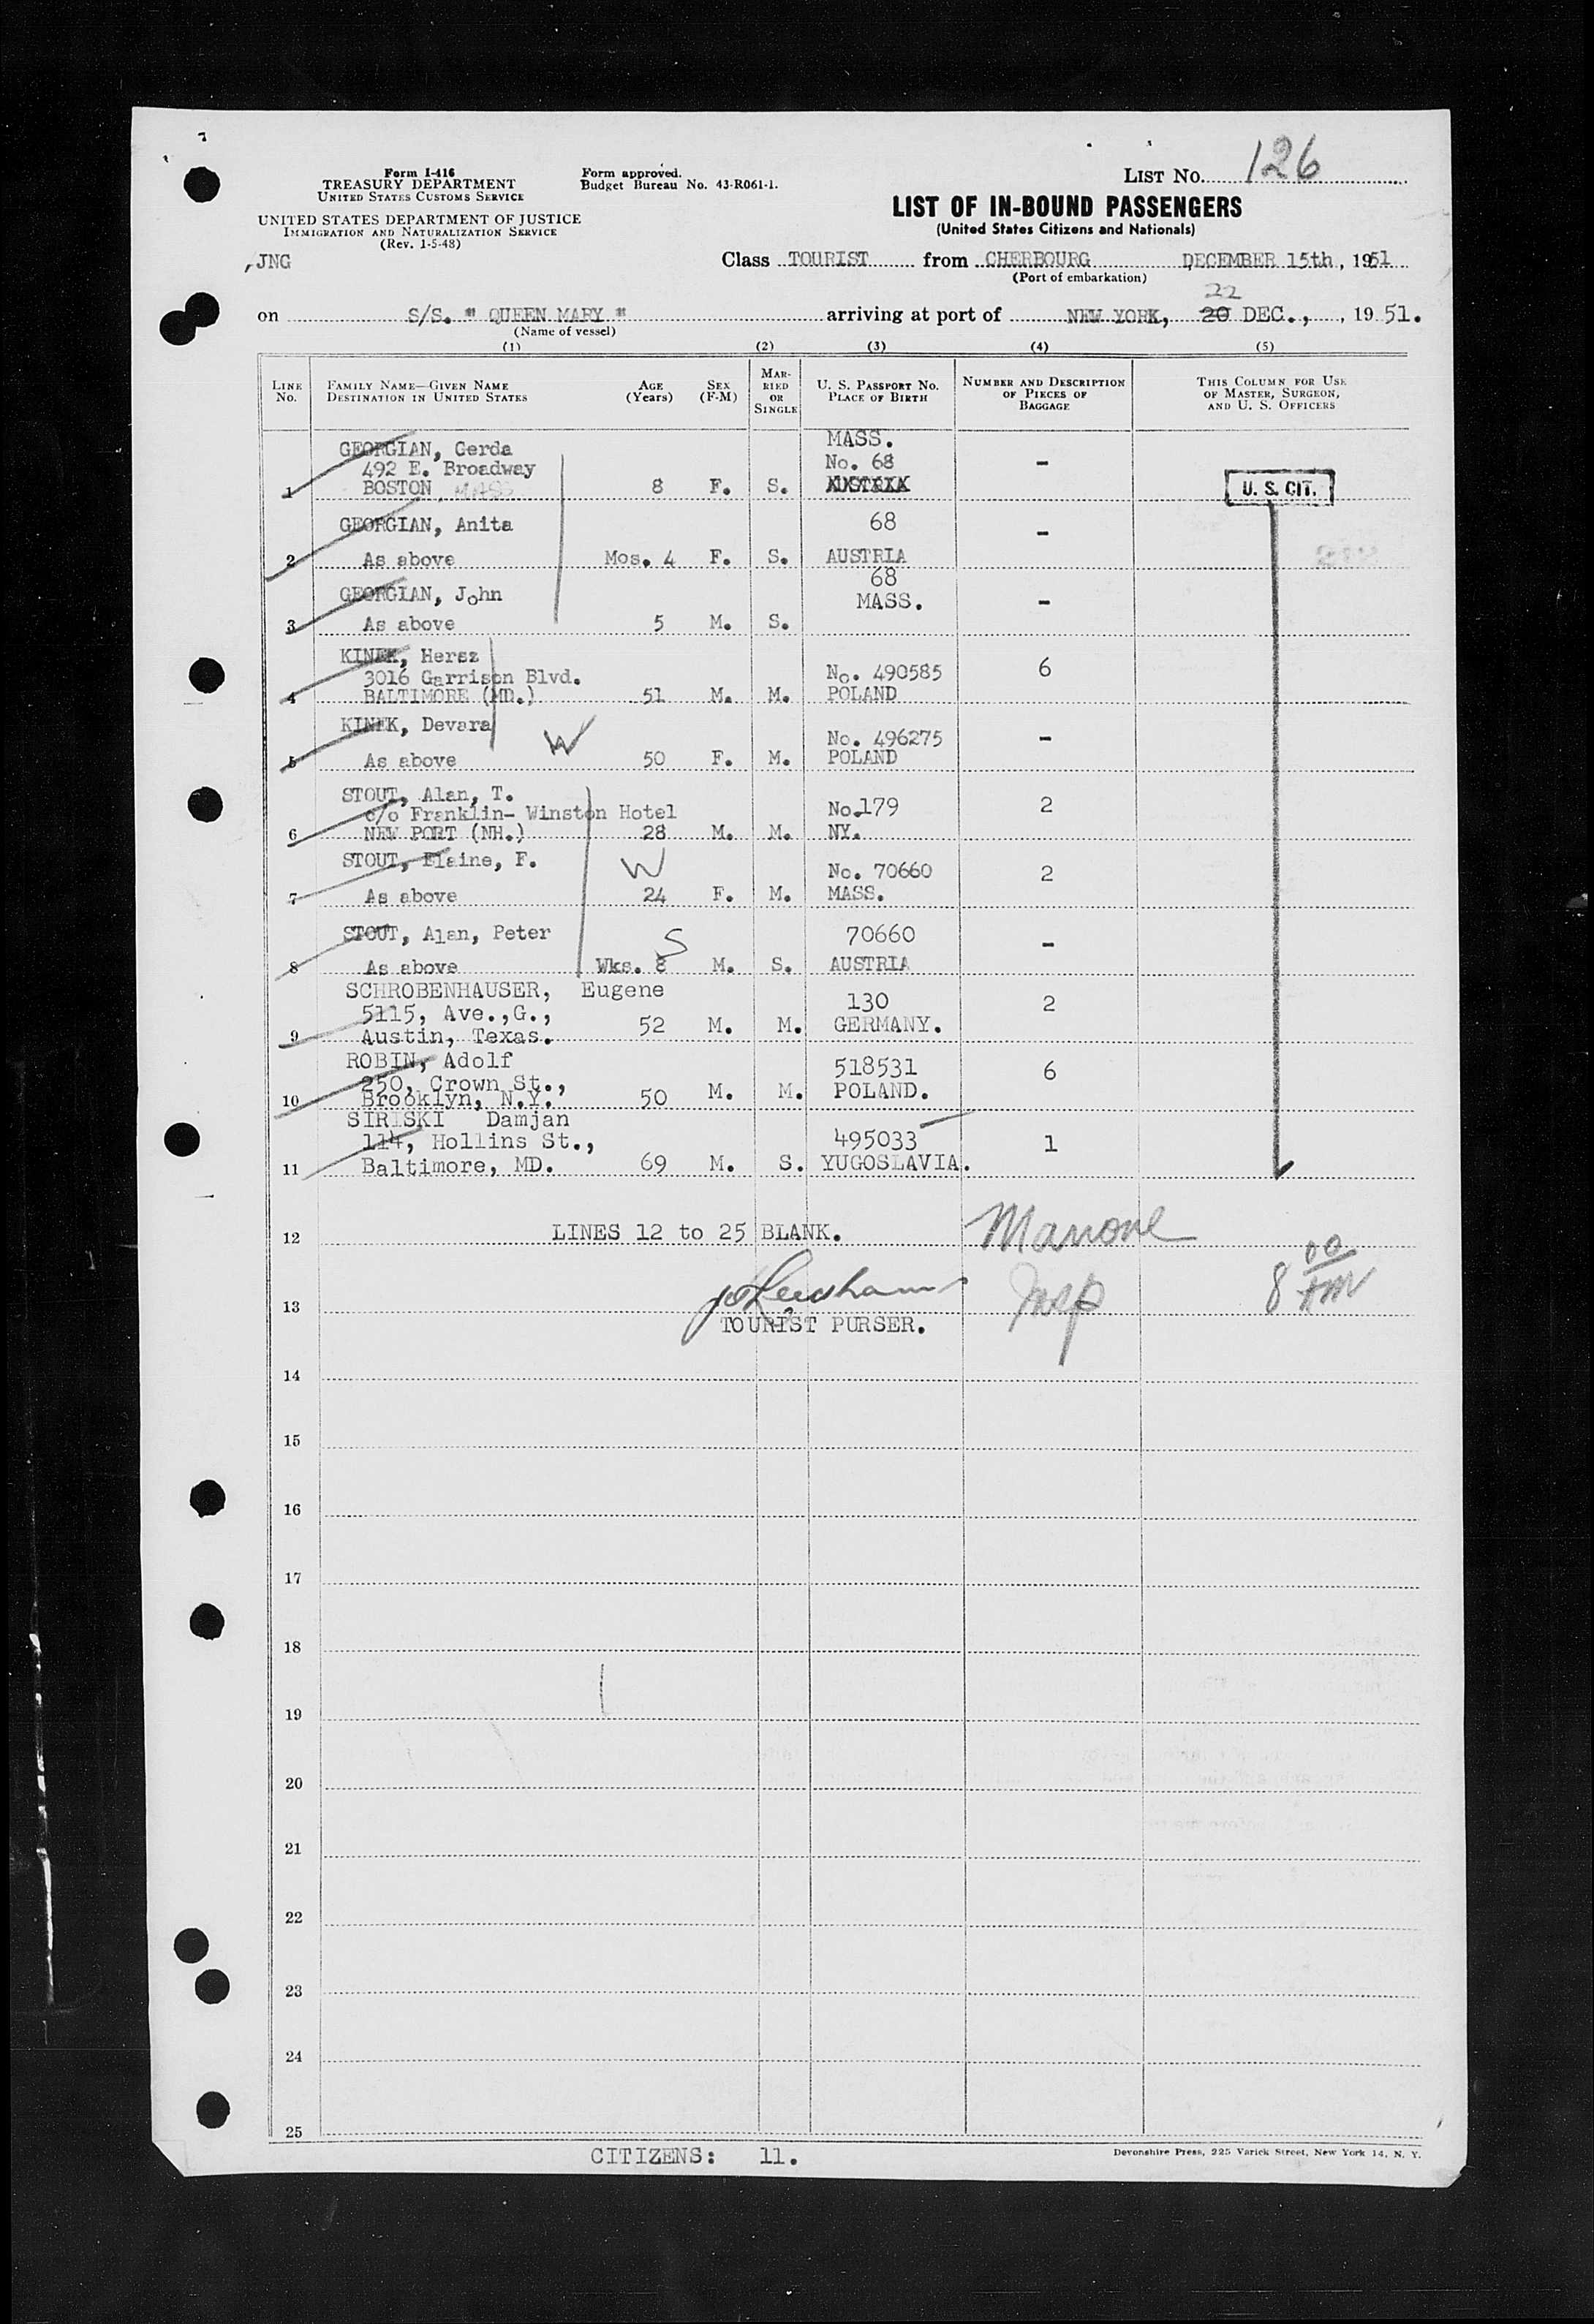 Form I-416
TREASURY DEPARTMENT
UNITED STATES CUSTOMS SERVICE
UNITED STATES DEPARTMENT OF JUSTICE
IMMIGRATION AND NATURALIZATION SERVICE
(Rev. 1-5-48)
Form approved.
Budget Bureau No. 43-R061-1.
LIST NO. 126
LIST OF IN-BOUND PASSENGERS
(United States Citizens and Nationals)
JNG
Class TOURIST from CHERBOURG DECEMBER 15th, 1951
(Port of embarkation)
22
on S/S. " QUEEN MARY " arriving at port of NEW YORK, 20 DEC., , 19 51.
(Name of vessel)
(1) (2) (3) (4) (5)
LINE No. FAMILY NAME—GIVEN NAME DESTINATION IN UNITED STATES AGE (Years) SEX (F-M) MARRIED OR SINGLE U. S. PASSPORT NO. PLACE OF BIRTH NUMBER AND DESCRIPTION OF PIECES OF BAGGAGE THIS COLUMN FOR USE OF MASTER, SURGEON, AND U. S. OFFICERS
GEORGIAN, Gerda MASS.
492 E. Broadway No. 68 -
1 BOSTON MASS 8 F. S. AUSTRIA U. S. CIT.
GEORGIAN, Anita 68 -
2 As above Mos. 4 F. S. AUSTRIA
GEORGIAN, John 68
MASS. -
3 As above 5 M. S.
KINEK, Hersz
3016 Garrison Blvd. No. 490585 6
4 BALTIMORE (MD.) 51 M. M. POLAND
KINEK, Devara No. 496275 -
5 As above W 50 F. M. POLAND
STOUT, Alan, T.
c/o Franklin- Winston Hotel No.179 2
6 NEW PORT (NH.) 28 M. M. NY.
STOUT, Elaine, F. W No. 70660 2
7 As above 24 F. M. MASS.
STOUT, Alan, Peter S 70660 -
8 As above Wks. 8 M. S. AUSTRIA
SCHROBENHAUSER, Eugene
5115, Ave.,G., 130 2
9 Austin, Texas. 52 M. M. GERMANY.
ROBIN, Adolf
250, Crown St., 518531 6
10 Brooklyn, N.Y. 50 M. M. POLAND.
SIRISKI Damjan
114, Hollins St., 495033 1
11 Baltimore, MD. 69 M. S. YUGOSLAVIA.
12 LINES 12 to 25 BLANK. Manone
13 Insp 8 00 AM
TOURIST PURSER.
14
15
16
17
18
19
20
21
22
23
24
25
CITIZENS: 11.
Devonshire Press, 225 Varick Street, New York 14, N. Y.